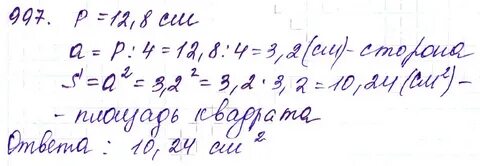 997. P = 12,8 см
a = P : 4 = 12,8 : 4 = 3,2 (см) - сторона
S = a² = 3,2² = 3,2 · 3,2 = 10,24 (см²) -
- площадь квадрата
Ответа : 10,24 см²